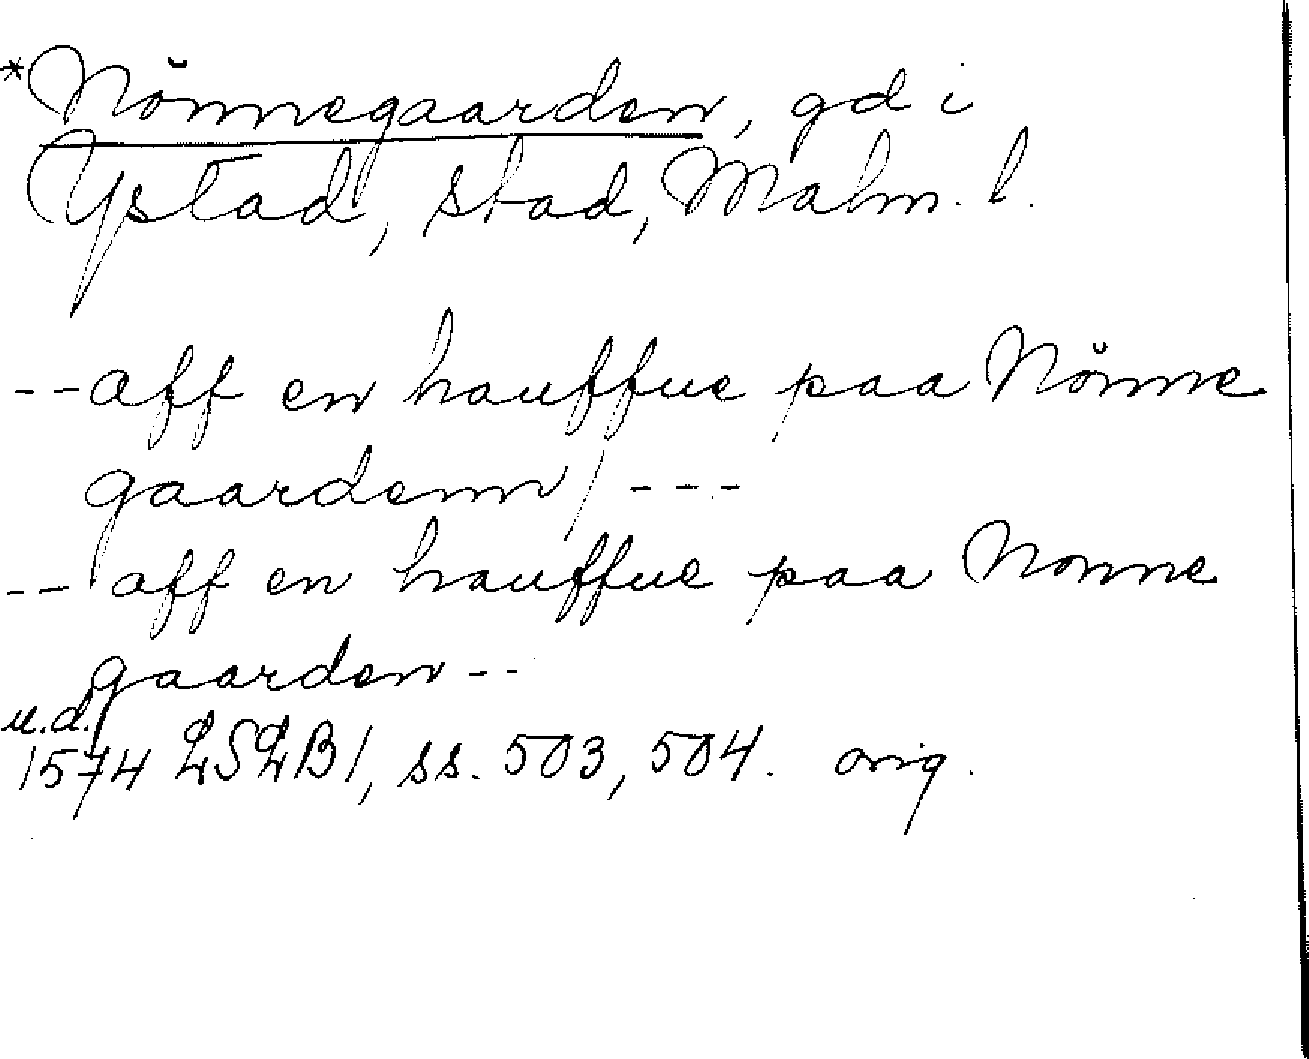 *Nŏnnegaarden, gd i
Ystad, stad, Malm. l.
-- aff en hauffue paa Nŏnne
gaardenn / ---
-- aff en hauffue paa Nonne
gaarden --
u.d.
1574 LSLB1, ss. 503, 504. orig.